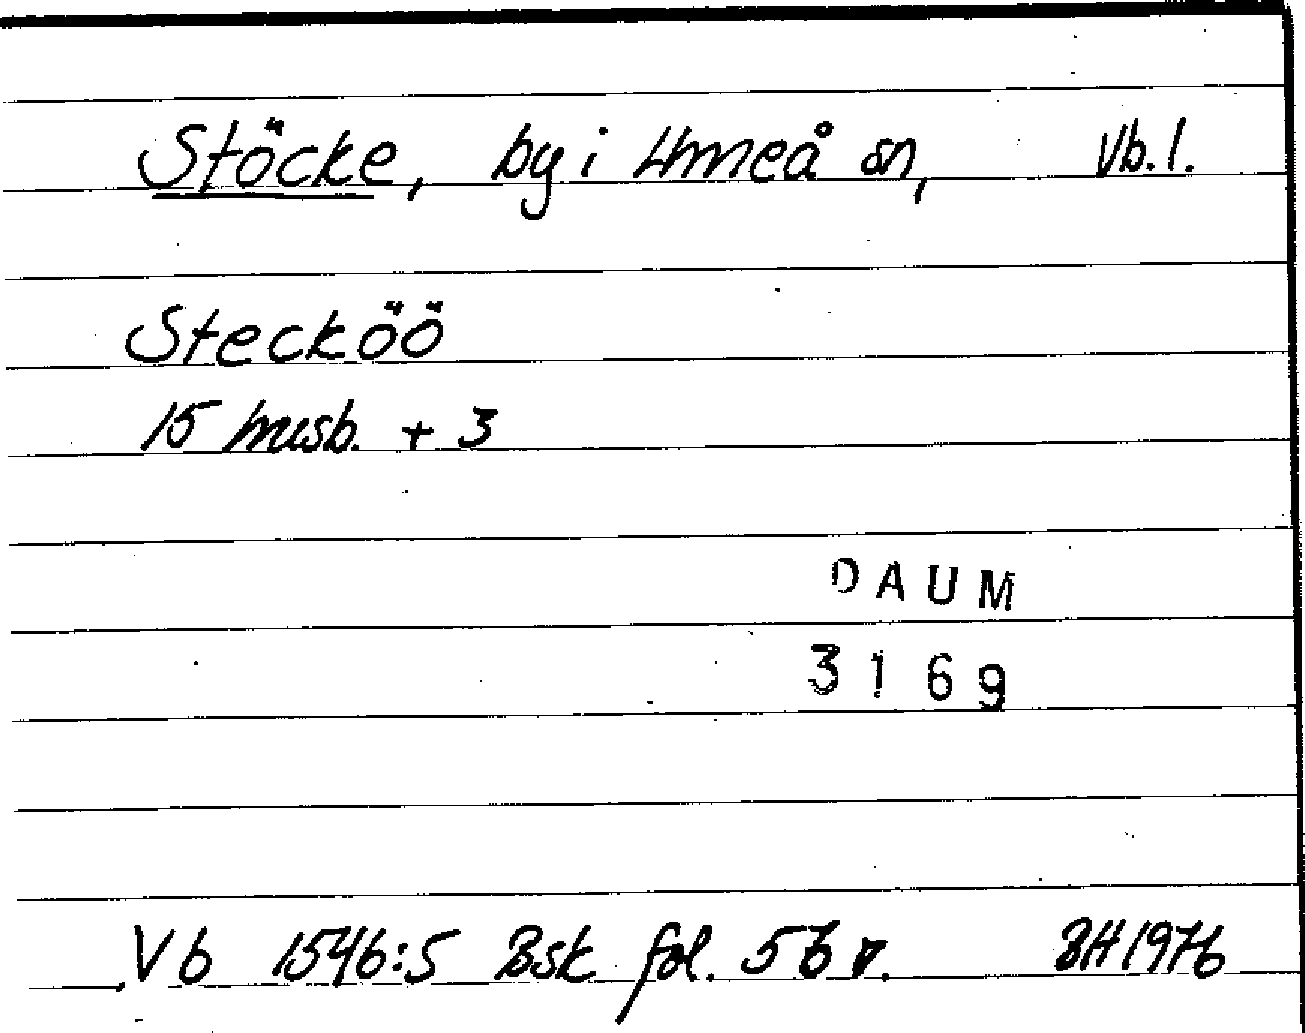 Stöcke, by i Umeå sn, Vb. l.
Steckőő
15 husb. + 3
DAUM
3169
Vb 1546:5 Bsk fol. 56 v. BH 1976